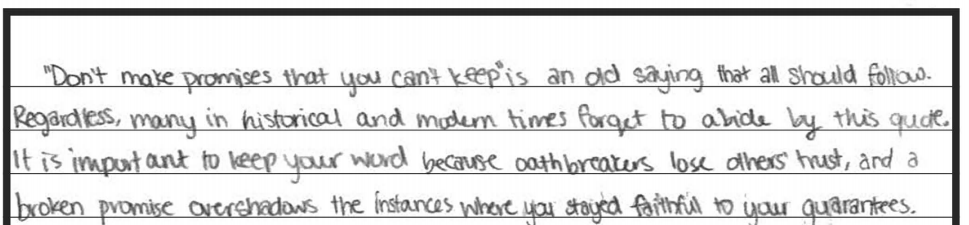 "Don't make promises that you can't keep" is an old saying that all should follow.
Regardless, many in historical and modern times forget to abide by this quote.
It is important to keep your word because oathbreakers lose others' trust, and a
broken promise overshadows the instances where you stayed faithful to your guarantees.